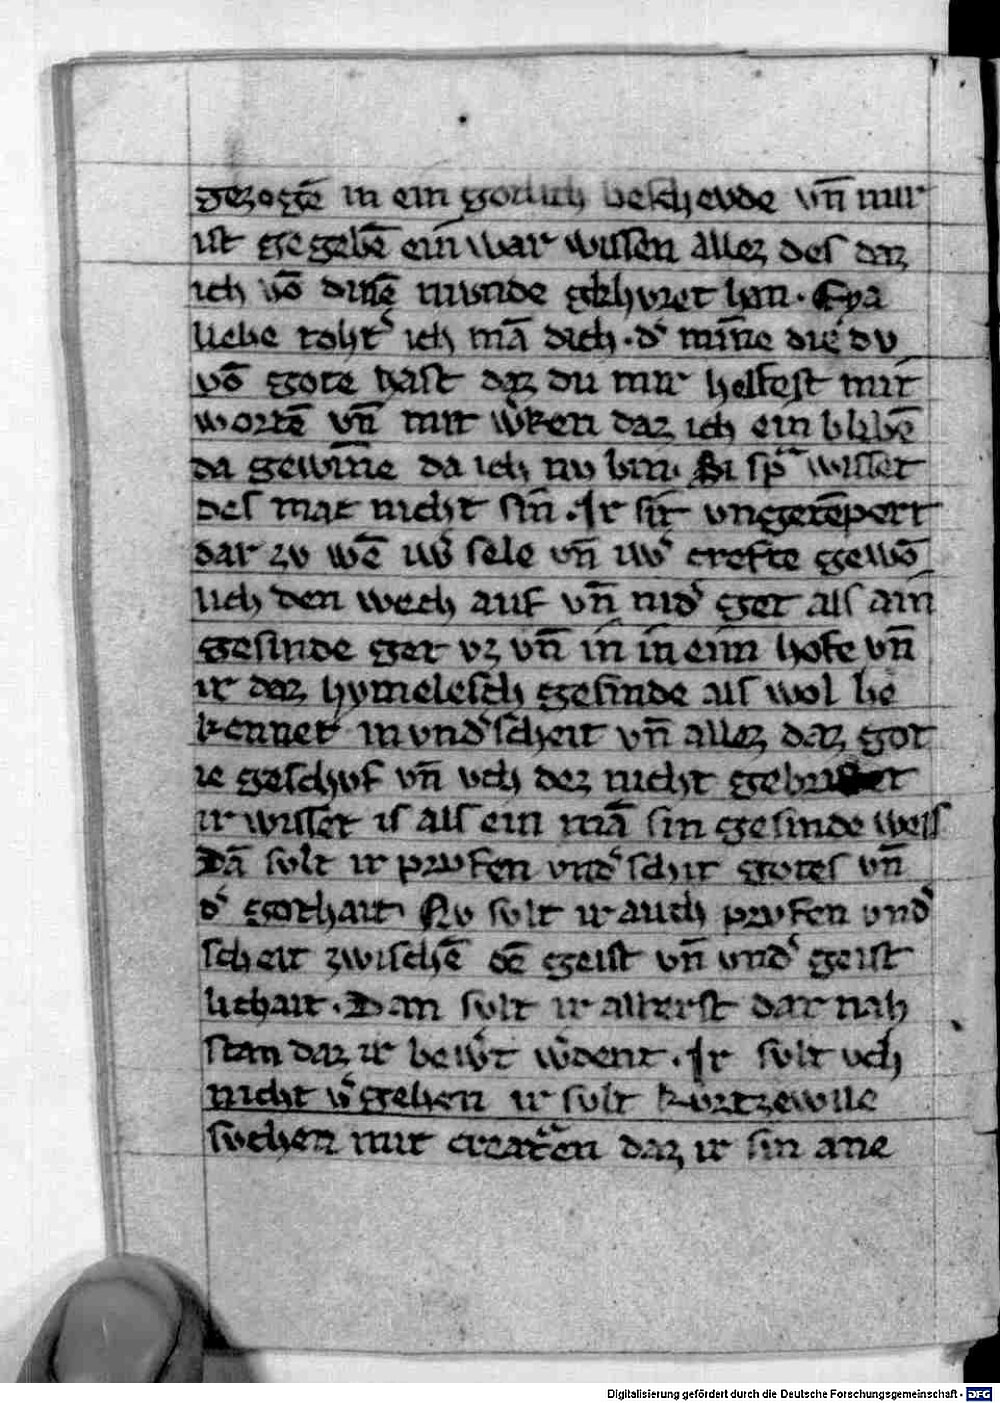 gezogē in ein gotlich bescheude vn̄ mir
ist gegebē ein war wissen allez des daz
ich vō dinē munde gehoret han. Eya
liebe toht͛ ich mā dich. d͛ minne die du
vō gote hast daz du mir helfest mit
wortē vn̄ mit w͛ken daz ich ein blibē
da gewinne da ich nv bin. Si sp͛ch wisset
des mac nicht sin. Ir sit vngetēpert
dar zv wē iw͛ sele vn̄ iw͛ crefte gewō
lich den wech auf vn̄ nid͛ get als ain
gesinde get vz vn̄ in in eim hofe vn̄
ir daz hymelesch gesinde als wol be
kennet in vnd͛scheit vn̄ allez daz got
ie geschvf vn̄ vch dez nicht gebristet
ir wisset is als ein mā sin gesinde weis
Dā svlt ir prvfen vnd͛schit gotes vn̄
d͛ gothait Nv svlt ir auch prvfen vnd͛
scheit zwischē dē geist vn̄ vnd͛ geist
lichait. Dan svlt ir allerst dar nah
stan daz ir bew͛t w͛dent. Ir svlt vch
nicht v͛gehen ir svlt kvrtzewile
svchen mit creatrēn daz ir sin ane
Digitalisierung gefördert durch die Deutsche Forschungsgemeinschaft - DFG